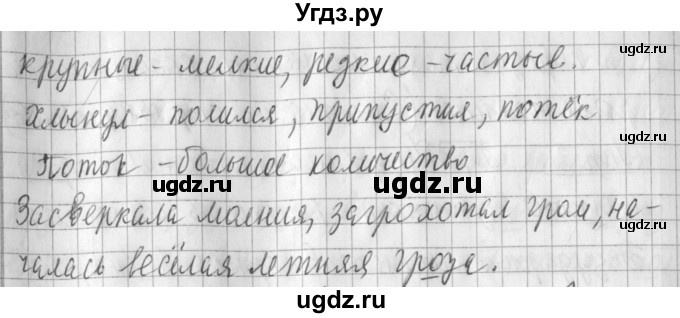 Угдз.ру
крупные - мелкие, редкие - частые.
ugdz.ru
ugdz.ru
Хлынул - полился, припустил, потёк
ugdz.ru
Поток - большое количество
ugdz.ru
ugdz.ru
Засверкала молния, загрохотал гром, на-
ugdz.ru
чалась весёлая летняя гроза.
ugdz.ru
ugdz.ru